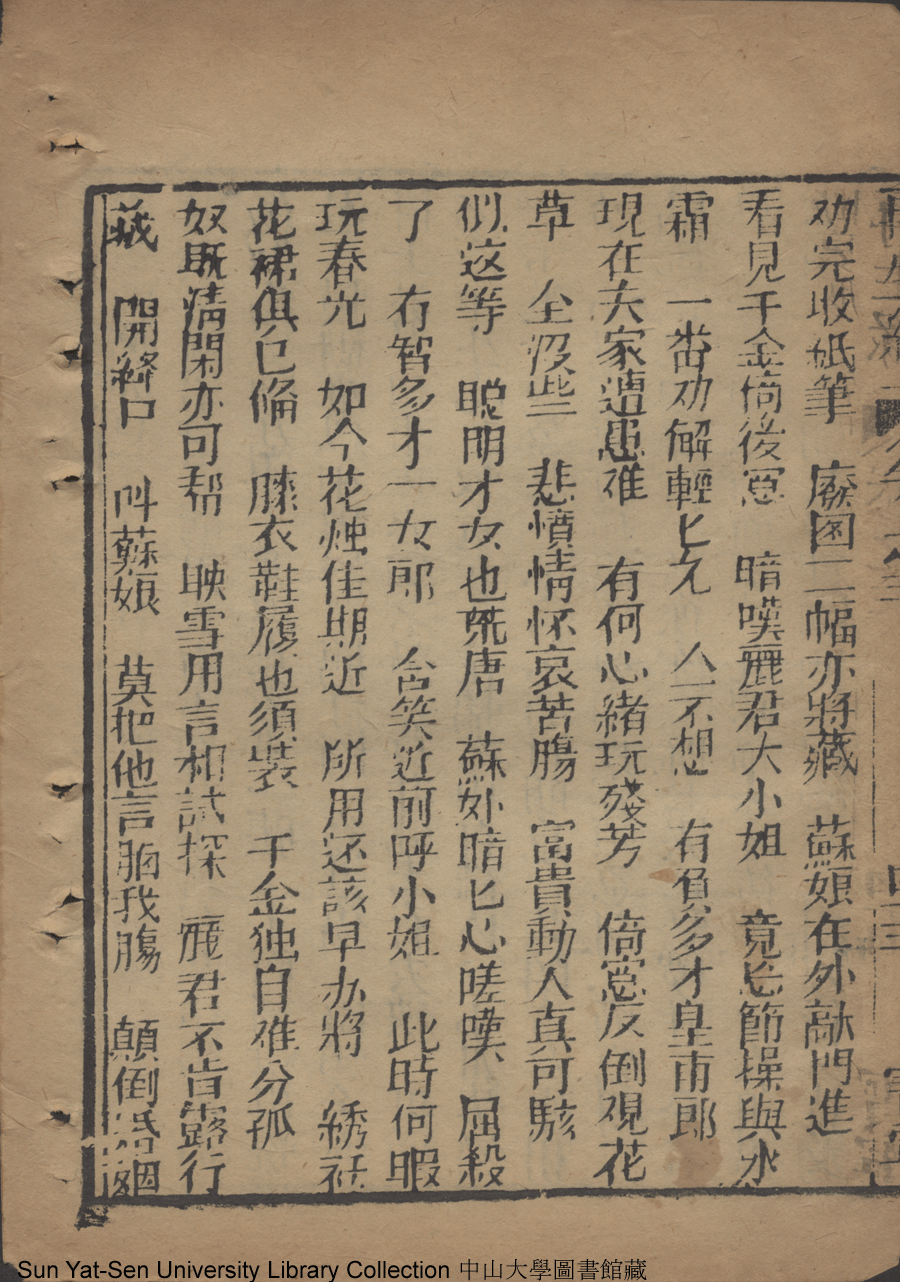 劝完收紙筆 廢图二幅亦將藏 蘇娘在外敲門進
看見千金倚後窓 暗嘆麗君大小姐 竟忘節操與氷
霜 一畨劝解輕匕允 人不想 有負多才皇甫郎
現在夫家遭患难 有何心緒玩殘芳 倚窓反倒覌花
草 全没些 悲憤情怀哀苦腸 富貴動人真可駭
們这等 聪明才女也荒唐 蘇外暗匕心嗟嘆 屈殺
了 冇智多才一女郎 含笑近前呼小姐 此時何暇
玩春光 如今花烛佳期近 所用还該早办將 綉袄
花裙俱已俻 膝衣鞋履也須裝 千金独自难分孤
奴既清閑亦可帮 映雪用言相試探 麗君不肯露行
藏 開絳口 呌蘇娘 莫把他言 我腸 顛倒婚姻
四三
Sun Yat-Sen University Library Collection 中山大學圖書館藏